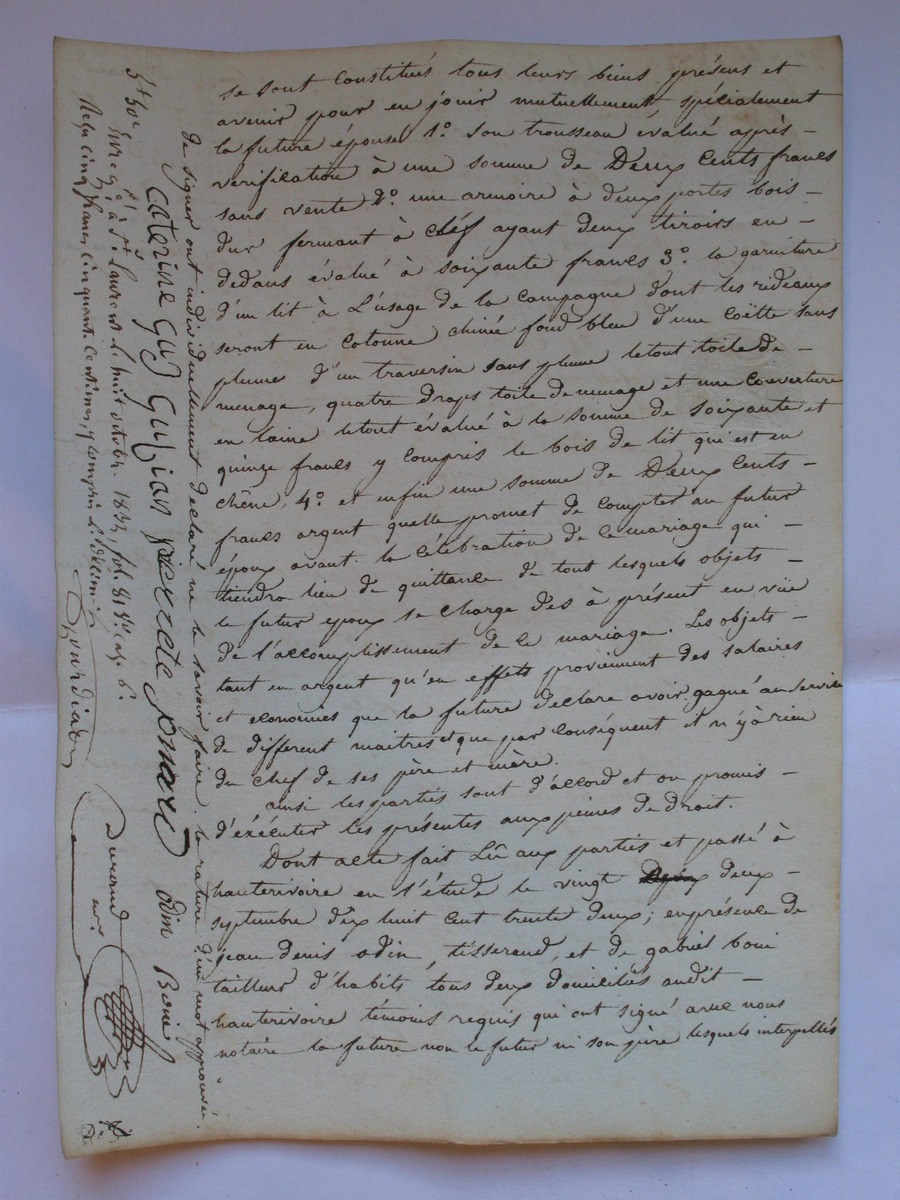 se sont Constitués tous leurs biens présens et
avenir pour en jouir mutuellement, spécialement
la future épouse 1.º son trousseau évalué après –
verification à une somme de Deux Cents francs
sans vente 2.º une armoire à deux portes bois –
dur fermant à cléf ayant deux tiroirs en –
dedans évalué à soixante francs 3.º la garniture
d'un lit à L'usage de la Campagne dont les rideaux
seront en Cotonne chinée fond bleu d'une Coëtte sans
plume d'un traversin sans plume letout toile de –
menage, quatre draps toile de menage et une Couverture
en laine letout évalué à la somme de soixante et
quinze francs y Compris le bois de lit qui est en
chêne, 4.º et enfin une somme de Deux Cents –
francs argent quelle promet de Compter au futur
époux avant la Célébration de le mariage qui –
tiendra lieu de quittance de tout lesquels objets –
le futur epoux se Charge dès à présent en vüe
de l'accomplissement de le mariage. Les objets –
tant en argent qu'en effets proviennent des salaires
et economies que la future déclare avoir gagné au service
de different maitres et que par Conséquent il n'y à rien
du chef de ses père et mère.
ainsi les parties sont d'accord et on promis –
d'éxécuter les présentes aux peines de droit.
Dont acte fait Lû aux parties et passé à
hauterivoire en l'étude le vingt deux –
septembre dix huit Cent trente deux; en présence de
jean denis odin, tisserand, et de gabriel boui
tailleur d'habits tous deux domiciliés audit –
hauterivoire témoins requis qui ont signé avec nous
notaire la future non le futur ni son père lesquels interpellés
de signer ont individuellement déclaré ne le savoir faire. la rature d'un mot approuvée.
Caterine Guy Guyian pierrete odin Boui
Durand
Enreg.é à S.t Laurent le huit octobre 1832, fol. 81 v.º cas. 6.
Reçu cinq francs cinquante Centimes, y compris le décime